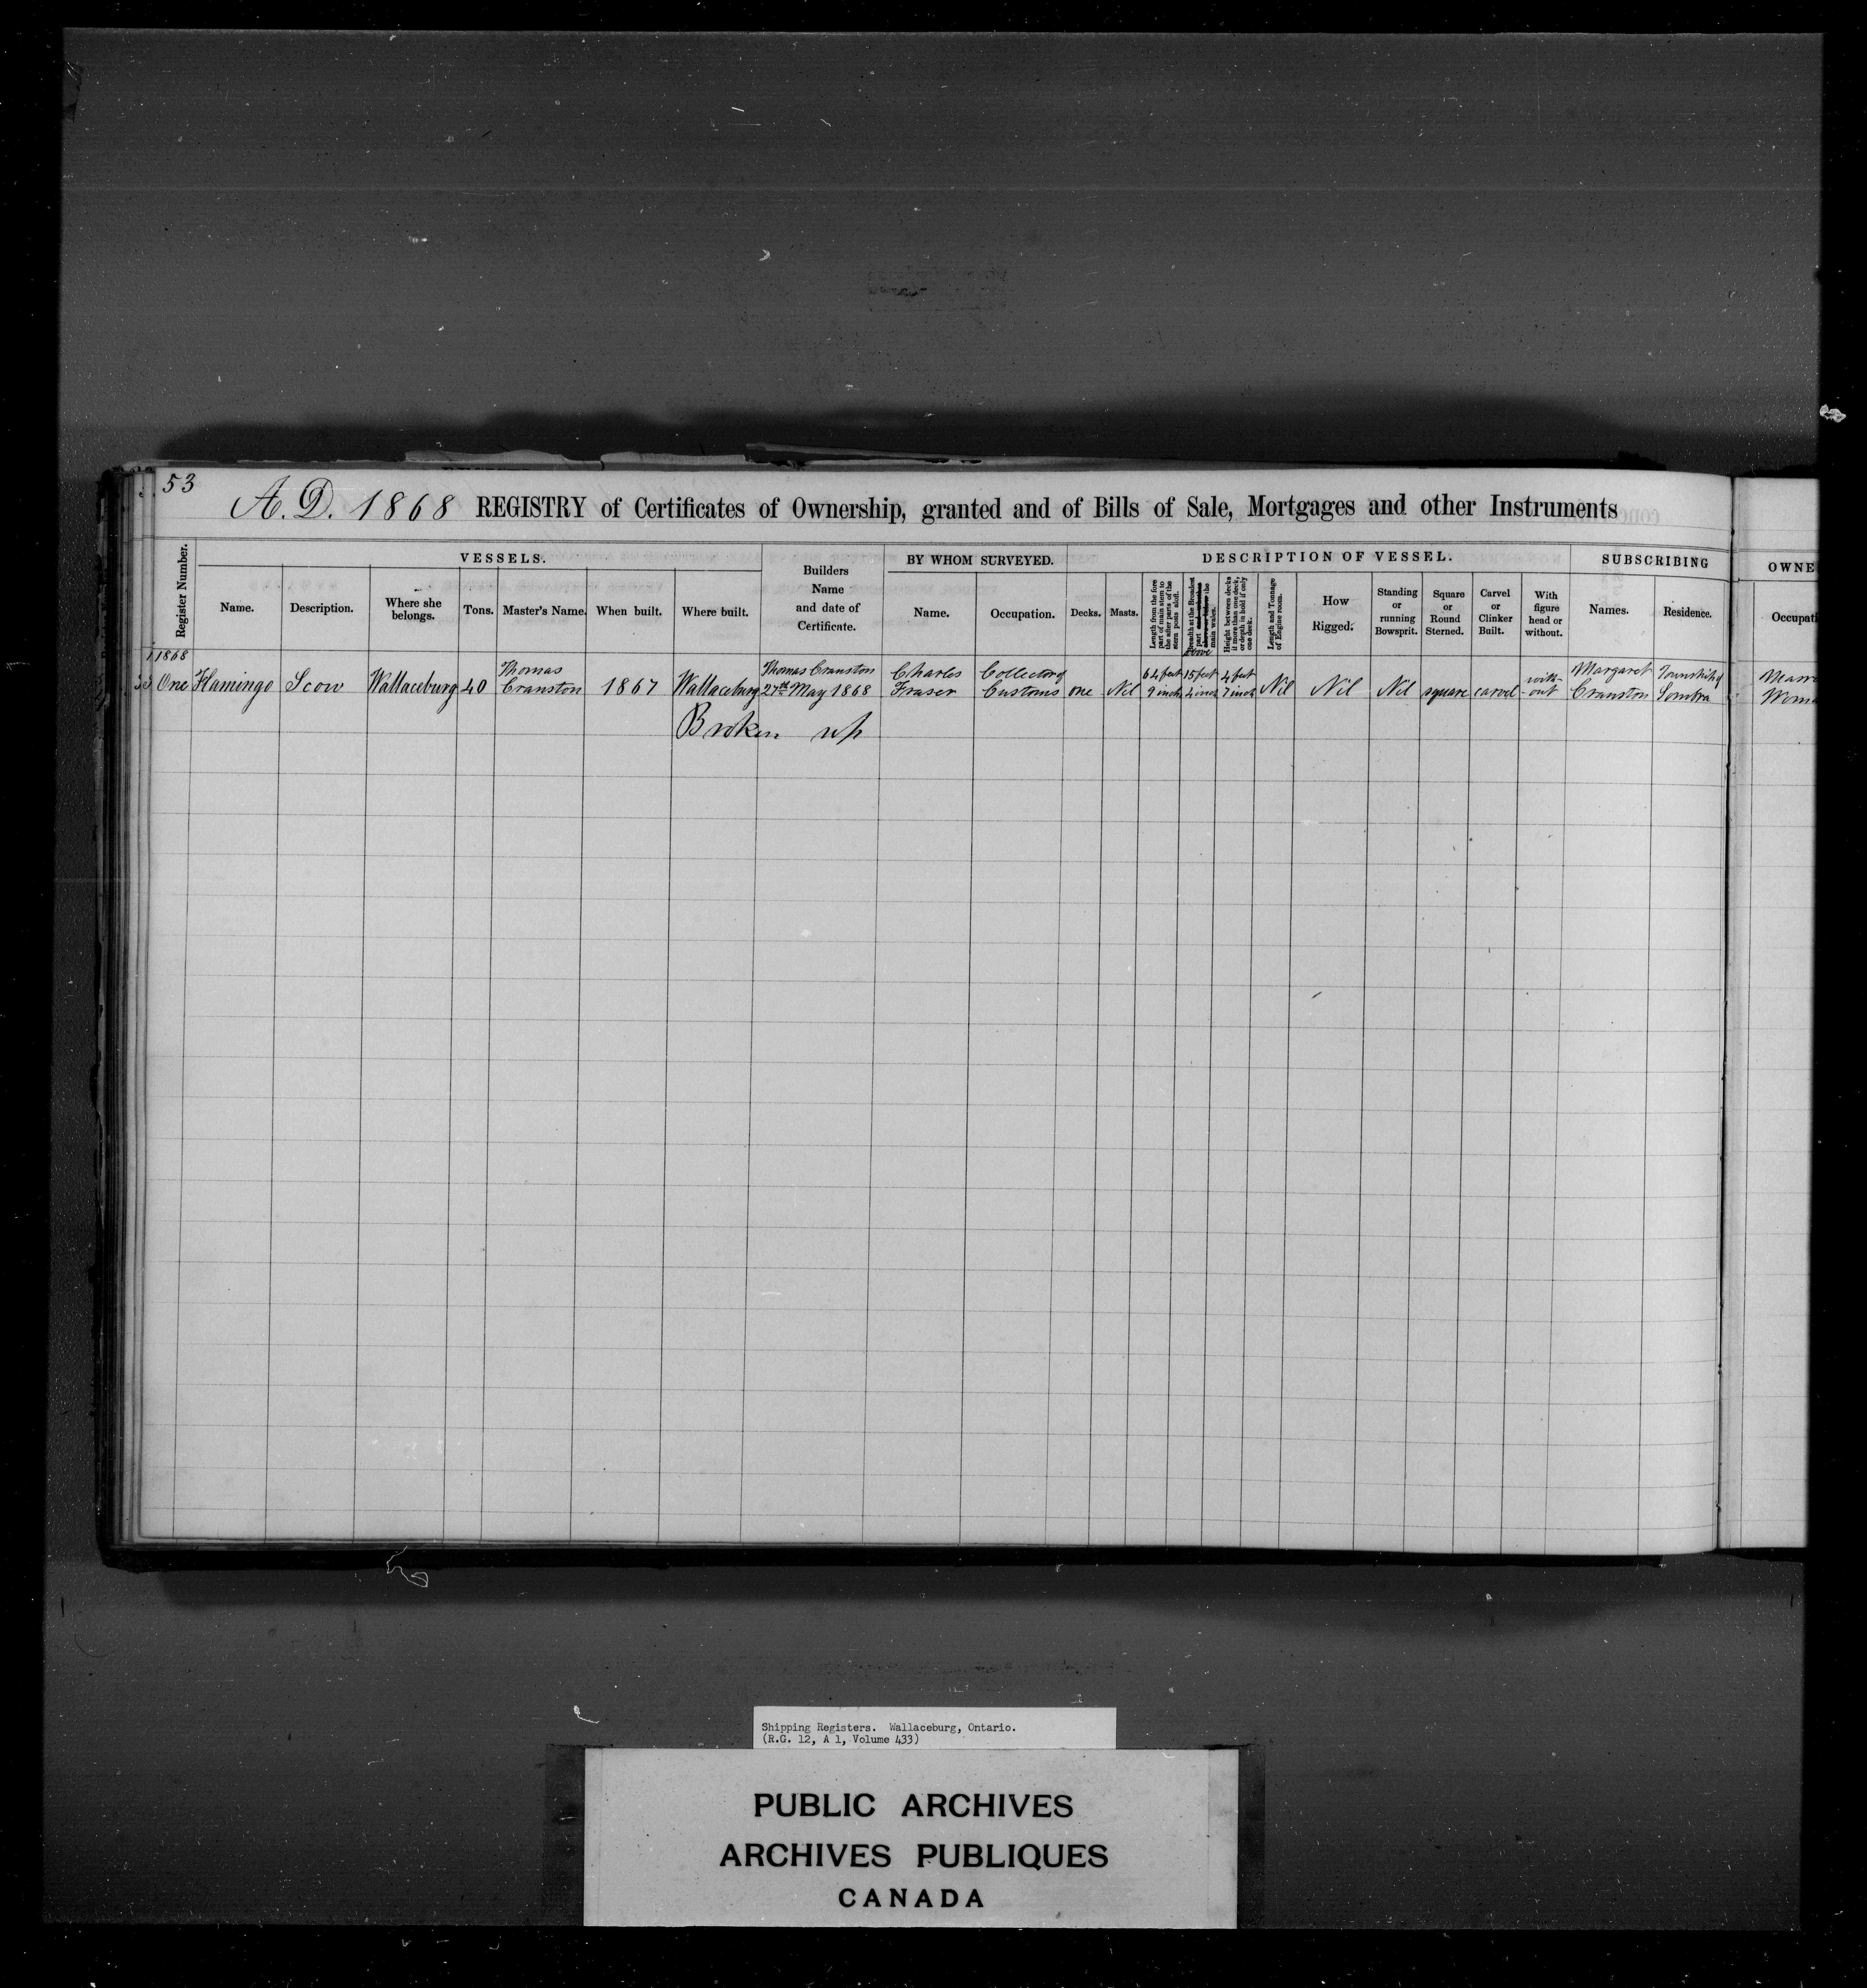 53
A.D. 1868 REGISTRY of Certificates of Ownership, granted and of Bills of Sale, Mortgages and other Instruments
Register Number.
VESSELS.
Name.
Description.
Where she
belongs.
Tons.
Master's Name.
When built.
Where built.
Builders
Name
and date of
Certificate.
BY WHOM SURVEYED.
Name.
Occupation.
DESCRIPTION OF VESSEL.
Decks.
Masts.
Length from the fore
part of main stem to
the after parts of the
stern posts aloft.
Breadth at the Broadest
part and whether
above or below the
main wales.
above
Height between decks
if more than one deck,
or depth in hold if only
one deck.
Length and Tonnage
of Engine room.
How
Rigged.
Standing
or
running
Bowsprit.
Square
or
Round
Sterned.
Carvel
or
Clinker
Built.
With
figure
head or
without.
SUBSCRIBING
Names.
Residence.
OWNE
Occupati
1868
One
Flamingo
Scow
Wallaceburg
40
Thomas
Cranston
1867
Wallaceburg
Thomas Cranston
27th May 1868
Charles
Fraser
Collector of
Customs
one
Nil
64 feet
9 inch
15 feet
4 inch
4 feet
7 inch
Nil
Nil
Nil
square
carvel
with-
-out
Margaret
Cranston
Township of
Sombra
Marr
Woma
Broken up
Shipping Registers. Wallaceburg, Ontario.
(R.G. 12, A 1, Volume 433)
PUBLIC ARCHIVES
ARCHIVES PUBLIQUES
CANADA